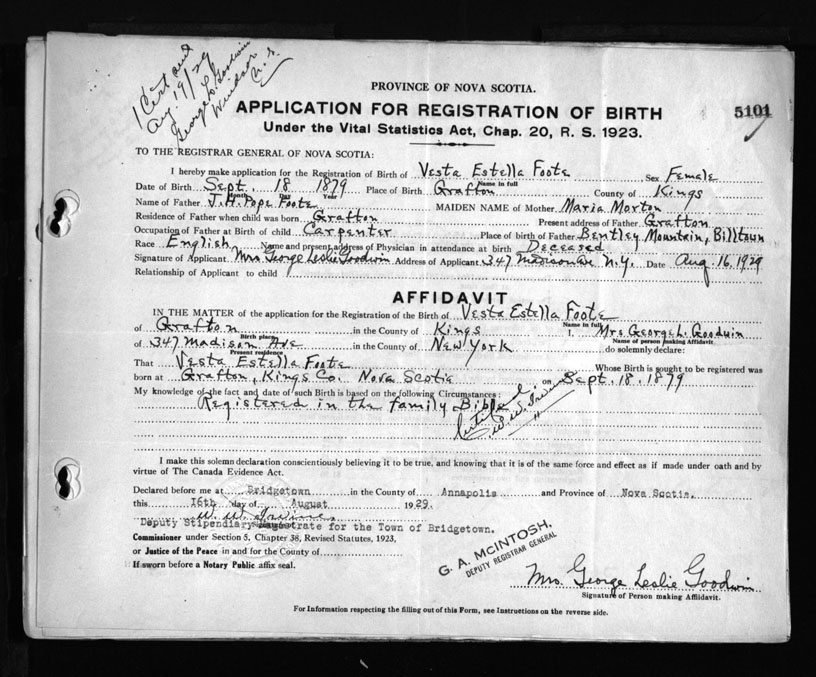 1 Cert. sent
Aug. 19/29
George L. Goodwin
Windsor
N. S.
PROVINCE OF NOVA SCOTIA.
APPLICATION FOR REGISTRATION OF BIRTH
5101
Under the Vital Statistics Act, Chap. 20, R. S. 1923.
TO THE REGISTRAR GENERAL OF NOVA SCOTIA:
I hereby make application for the Registration of Birth of Vesta Estella Foote Sex Female
Name in full
Date of Birth Sept. 18 1879 Place of Birth Grafton County of Kings
Month Day Year
Name of Father J. H. Pope Foote MAIDEN NAME of Mother Maria Morton
Residence of Father when child was born Grafton Present address of Father Grafton
Occupation of Father at Birth of child Carpenter Place of birth of Father Bentley Mountain, Billtown
Race English Name and present address of Physician in attendance at birth Deceased
Signature of Applicant Mrs George Leslie Goodwin Address of Applicant 347 Madison Ave N.Y. Date Aug. 16. 1929
Relationship of Applicant to child
AFFIDAVIT
IN THE MATTER of the application for the Registration of the Birth of Vesta Estella Foote
Name in full
of Grafton in the County of Kings I, Mrs George L. Goodwin
Birth place Name of person making Affidavit.
of 347 Madison Ave in the County of New York do solemnly declare:
Present residence
That Vesta Estella Foote Whose Birth is sought to be registered was
born at Grafton, Kings Co. Nova Scotia on Sept. 18. 1879
My knowledge of the fact and date of such Birth is based on the following Circumstances:
Registered in the family Bible
Certified
W. W. Irvine
I make this solemn declaration conscientiously believing it to be true, and knowing that it is of the same force and effect as if made under oath and by
virtue of The Canada Evidence Act.
Declared before me at Bridgetown in the County of Annapolis and Province of Nova Scotia.
this 16th day of August 1929.
W. W. Irvine
Deputy Stipendiary Magistrate for the Town of Bridgetown.
Commissioner under Section 5, Chapter 38, Revised Statutes, 1923,
or Justice of the Peace in and for the County of
If sworn before a Notary Public affix seal.
G. A. McINTOSH,
DEPUTY REGISTRAR GENERAL
Mrs. George Leslie Goodwin
Signature of Person making Affidavit.
For Information respecting the filling out of this Form, see Instructions on the reverse side.